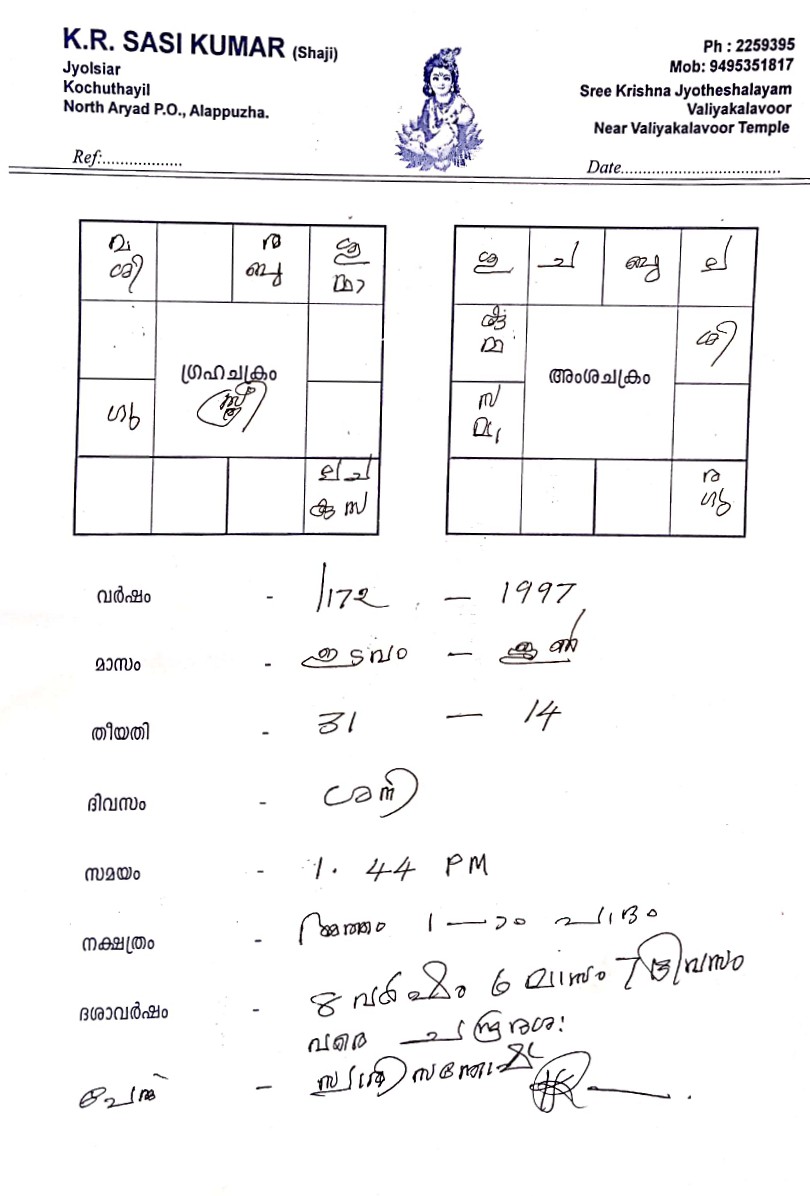 K.R. SASI KUMAR (Shaji)
Jyolsiar
Kochuthayil
North Aryad P.O., Alappuzha.
Ph : 2259395
Mob: 9495351817
Sree Krishna Jyotheshalayam
Valiyakalavoor
Near Valiyakalavoor Temple
Ref:...................
Date.....................................
ശി
ര
ബു
ശു
മാ
ഗ്രഹചക്രം
സ്ത്രീ
ഗു
ല ച
കു സ
ശു
ച
ബു
ല
മ
ശി
അംശചക്രം
സ
ര
ഗു
വർഷം - 1172 - 1997
മാസം - ഇടവം - ജൂൺ
തീയതി - 31 - 14
ദിവസം - ശനി
സമയം - 1.44 PM
നക്ഷത്രം - അത്തം 1-ാം പാദം
ദശാവർഷം - 8 വർഷം 6 മാസം 7 ദിവസം
വരെ ചന്ദ്രദശ:
പേര് -